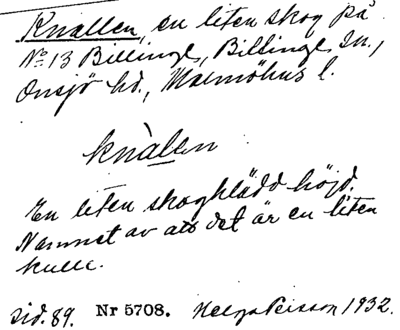 Knallen, en liten skog på
No 13 Billinge, Billinge sn.,
Onsjö hd., Malmöhus l.
knàlen
En liten skogklädd höjd.
Namnet av att det är en liten
kulle.
Sid. 89. Nr 5708. Helge Persson 1932.